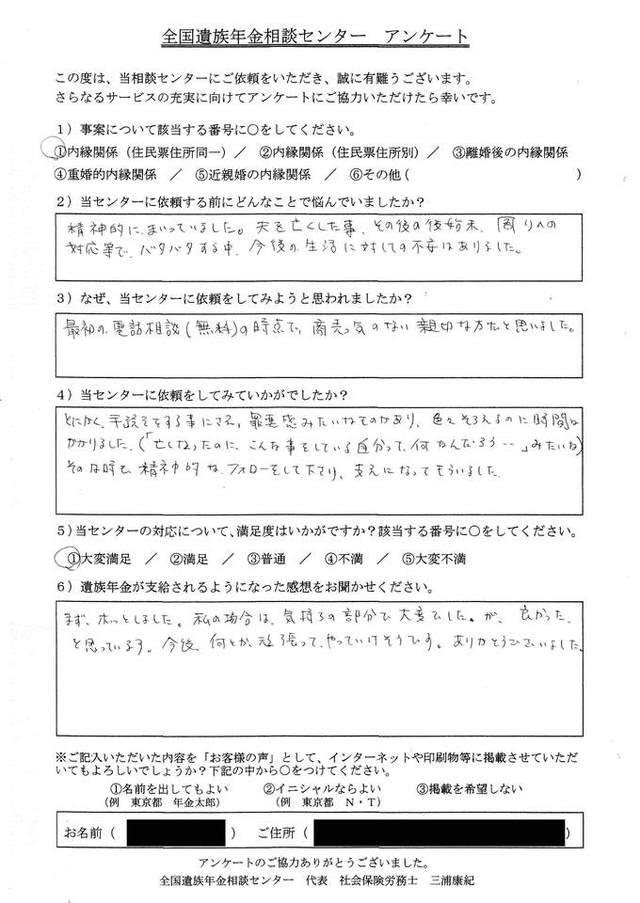 全国遺族年金相談センター　アンケート
この度は、当相談センターにご依頼をいただき、誠に有難うございます。
さらなるサービスの充実に向けてアンケートにご協力いただけたら幸いです。
1）事案について該当する番号に○をしてください。
①内縁関係（住民票住所同一）／　②内縁関係（住民票住所別）／　③離婚後の内縁関係
④重婚的内縁関係　／　⑤近親婚の内縁関係　／　⑥その他（　　　）
2）当センターに依頼する前にどんなことで悩んでいましたか？
精神的に、まいっていました。夫を亡くした事、その後の後始末、周りへの
対応等で、バタバタする中、今後の生活に対しての不安はありました。
3）なぜ、当センターに依頼をしてみようと思われましたか？
最初の電話相談（無料）の時点で、商売っ気のない親切な方だと思いました。
4）当センターに依頼をしてみていかがでしたか？
とにかく、手続きをする事にさえ、罪悪感みたいなものがあり、色々そろえるのに時間は
かかりました、（「亡くなったのに、こんな事をしている自分って、何なんだろう‥」みたいな）
その な時も、精神的な、フォローをして下さり、支えになってもらいました
5）当センターの対応について、満足度はいかがですか？該当する番号に○をしてください。
①大変満足　／　②満足　／　③普通　／　④不満　／　⑤大変不満
6）遺族年金が支給されるようになった感想をお聞かせください。
まず、ホッとしました。私の場合は、気持ちの部分で大変でした。が、良かった、
と思っています。今後、何とか、頑張って、やっていけそうです。ありがとうございました。
※ご記入いただいた内容を「お客様の声」として、インターネットや印刷物等に掲載させていただ
いてもよろしいでしょうか？下記の中から○をつけてください。
①名前を出してもよい　②イニシャルならよい　③掲載を希望しない
（例　東京都　年金太郎）　（例　東京都　N・T）
お名前（　　　）　ご住所（　　　）
アンケートのご協力ありがとうございました。
全国遺族年金相談センター　代表　社会保険労務士　三浦康紀